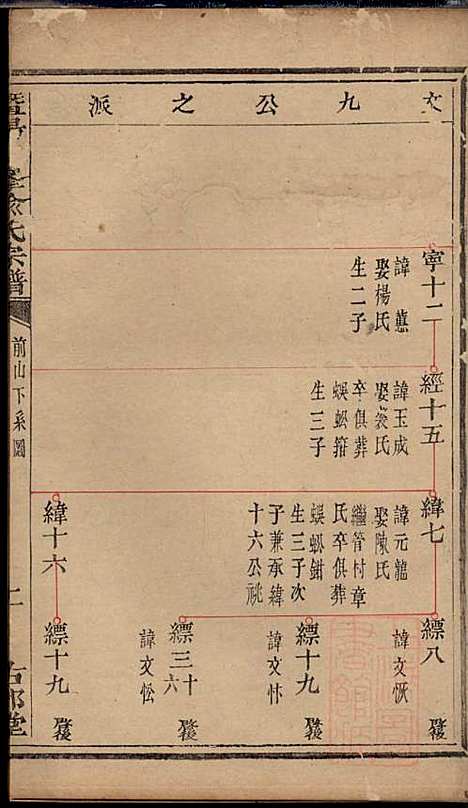 文九公之派
寧十二
諱蕙
娶楊氏
生二子
經十五
諱玉成
娶裘氏
卒俱葬
蜈蚣箝
生三子
緯七
諱元龍
娶陳氏
繼管村章
氏卒俱葬
蜈蚣鉗
生三子次
子兼承緯
十六公祧
緯十六
縹八
諱文恢
發後
縹十九
諱文怀
發後
縹三十六
諱文忪
發後
縹十九
發後
氏宗譜
前山下系圖
二